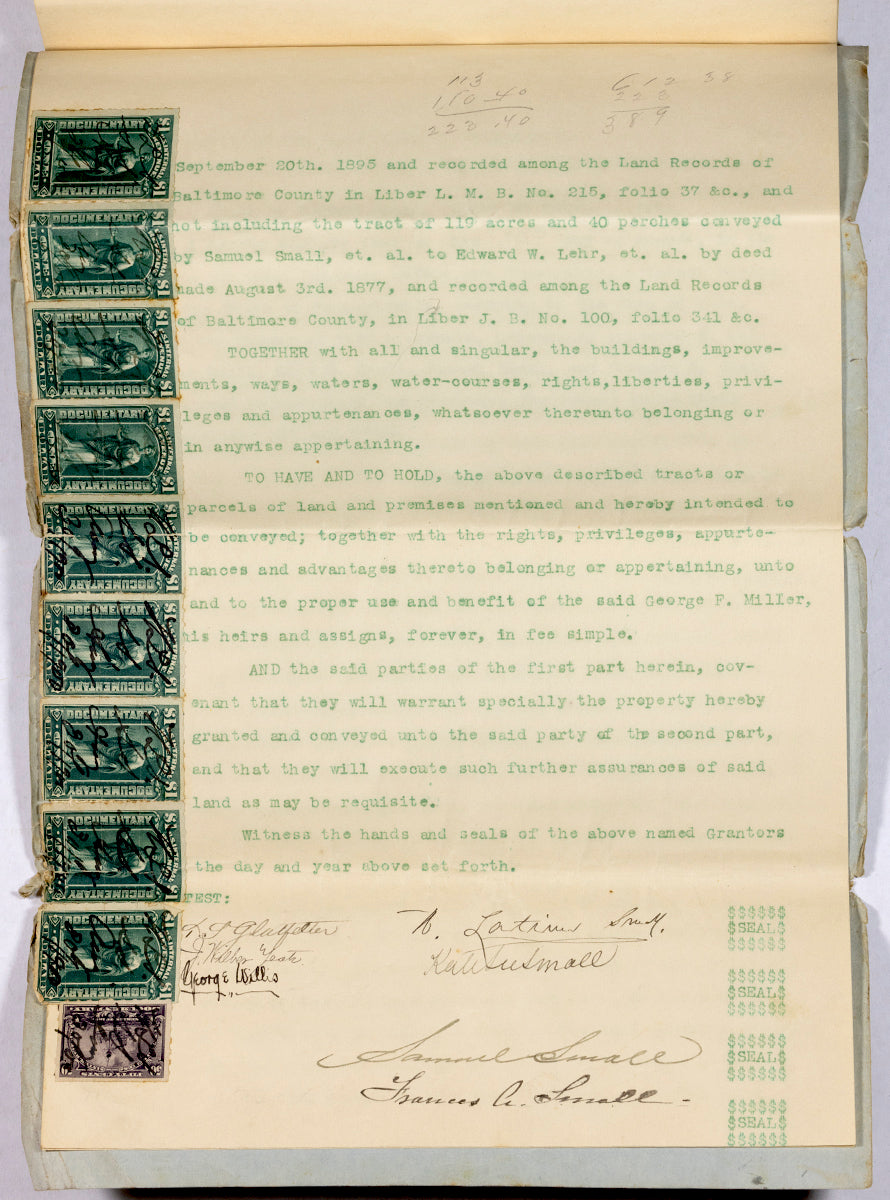 113
110.40
223.40
612 38
223
389
September 20th. 1895 and recorded among the Land Records of
Baltimore County in Liber L. M. B. No. 215, folio 37 &c., and
not including the tract of 119 acres and 40 perches conveyed
by Samuel Small, et. al. to Edward W. Lehr, et. al. by deed
made August 3rd. 1877, and recorded among the Land Records
of Baltimore County, in Liber J. B. No. 100, folio 341 &c.
TOGETHER with all and singular, the buildings, improve-
ments, ways, waters, water-courses, rights,liberties, privi-
leges and appurtenances, whatsoever thereunto belonging or
in anywise appertaining.
TO HAVE AND TO HOLD, the above described tracts or
parcels of land and premises mentioned and hereby intended to
be conveyed; together with the rights, privileges, appurte-
nances and advantages thereto belonging or appertaining, unto
and to the proper use and benefit of the said George F. Miller,
his heirs and assigns, forever, in fee simple.
AND the said parties of the first part herein, cov-
enant that they will warrant specially the property hereby
granted and conveyed unto the said party of the second part,
and that they will execute such further assurances of said
land as may be requisite.
Witness the hands and seals of the above named Grantors
the day and year above set forth.
TEST:
George Willis
Latimer Small
Kate Small
Samuel Small
Frances A. Small
$$$$$$
$SEAL$
$$$$$$
$$$$$$
$SEAL$
$$$$$$
$$$$$$
$SEAL$
$$$$$$
$$$$$$
$SEAL$
$$$$$$
DOCUMENTARY
ONE DOLLAR
$1
DOCUMENTARY
$1
DOCUMENTARY
$1
DOCUMENTARY
$1
DOCUMENTARY
$1
DOCUMENTARY
$1
DOCUMENTARY
$1
DOCUMENTARY
$1
DOCUMENTARY
$1
FIFTY CENTS